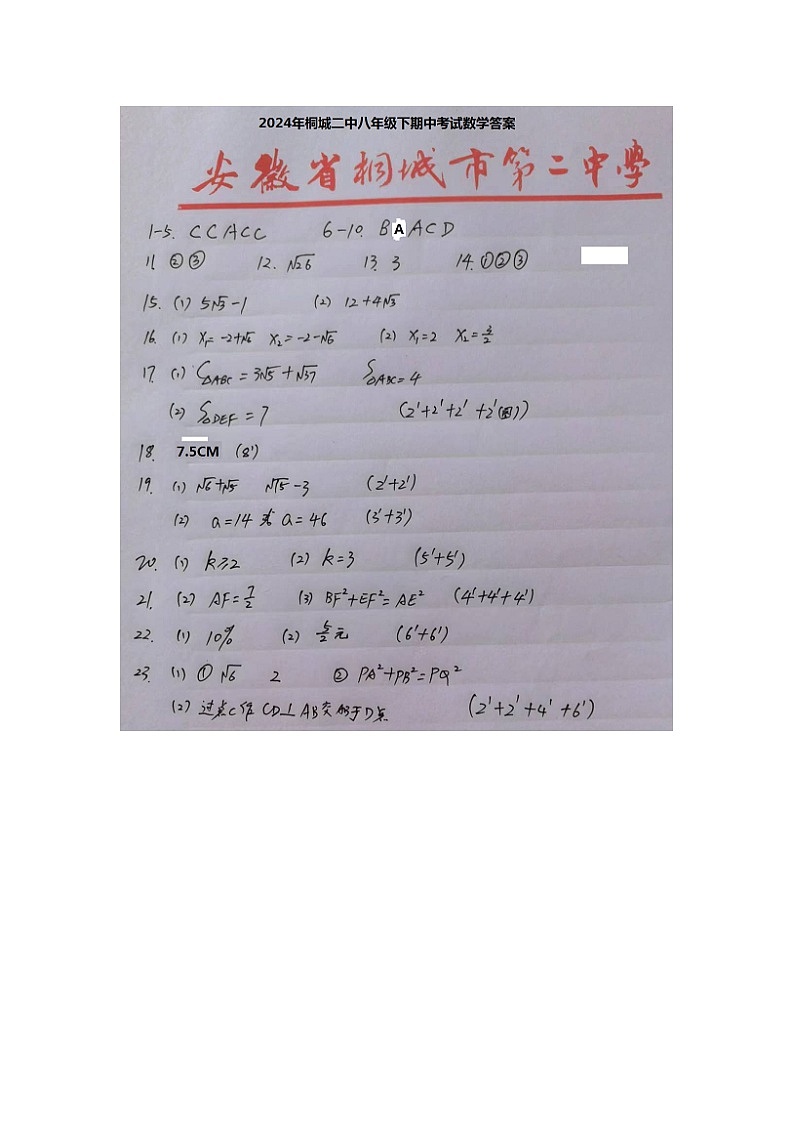 2024年桐城二中八年级下期中考试数学答案
安徽省桐城市第二中學
1-5. CCACC 6-10. BAACD
11. ②③ 12. √26 13. 3 14. ①②③
15. (1) 5√3-1 (2) 12+4√3
16. (1) X₁=-2+√6 X₂=-2-√6 (2) X₁=2 X₂=3/2
17. (1) C△ABC=3√5+√37 S△ABC=4
(2) S△DEF=7 (2'+2'+2'+2'(图))
18. 7.5CM (8')
19. (1) √6+√5 √15-3 (2'+2')
(2) a=14 或 a=46 (3'+3')
20. (1) k≥2 (2) k=3 (5'+5')
21. (2) AF=7/2 (3) BF²+EF²=AE² (4'+4'+4')
22. (1) 10% (2) 5/2元 (6'+6')
23. (1) ① √6 2 ② PA²+PB²=PQ²
(2) 过点C作CD⊥AB交AB于D点 (2'+2'+4'+6')